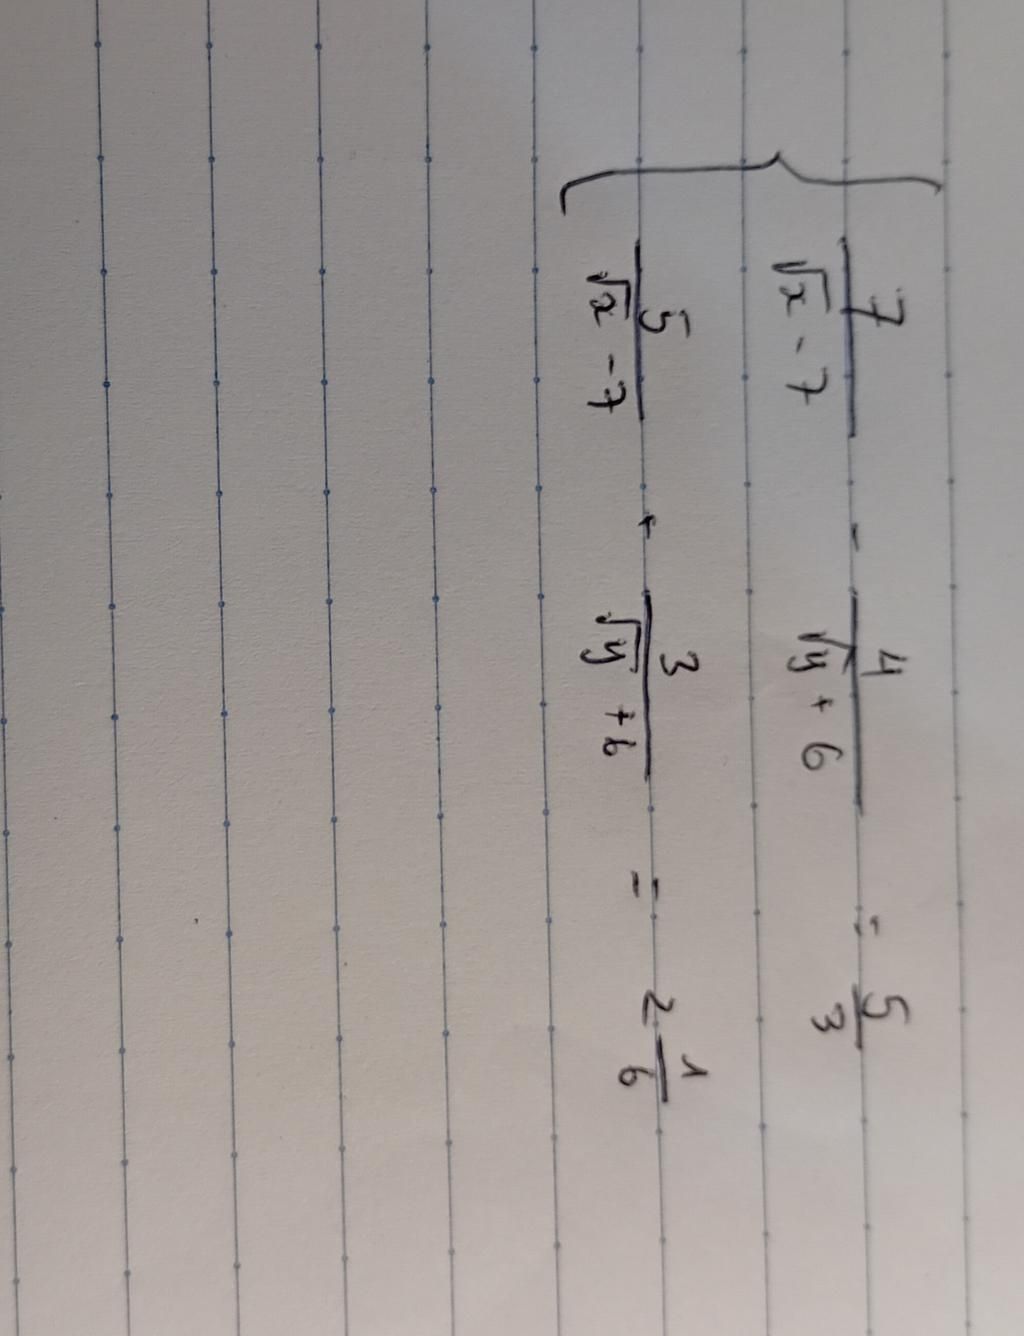 7/(√x - 7) - 4/(√y + 6) = 5/3
5/(√x - 7) + 3/(√y + 6) = 2 1/6